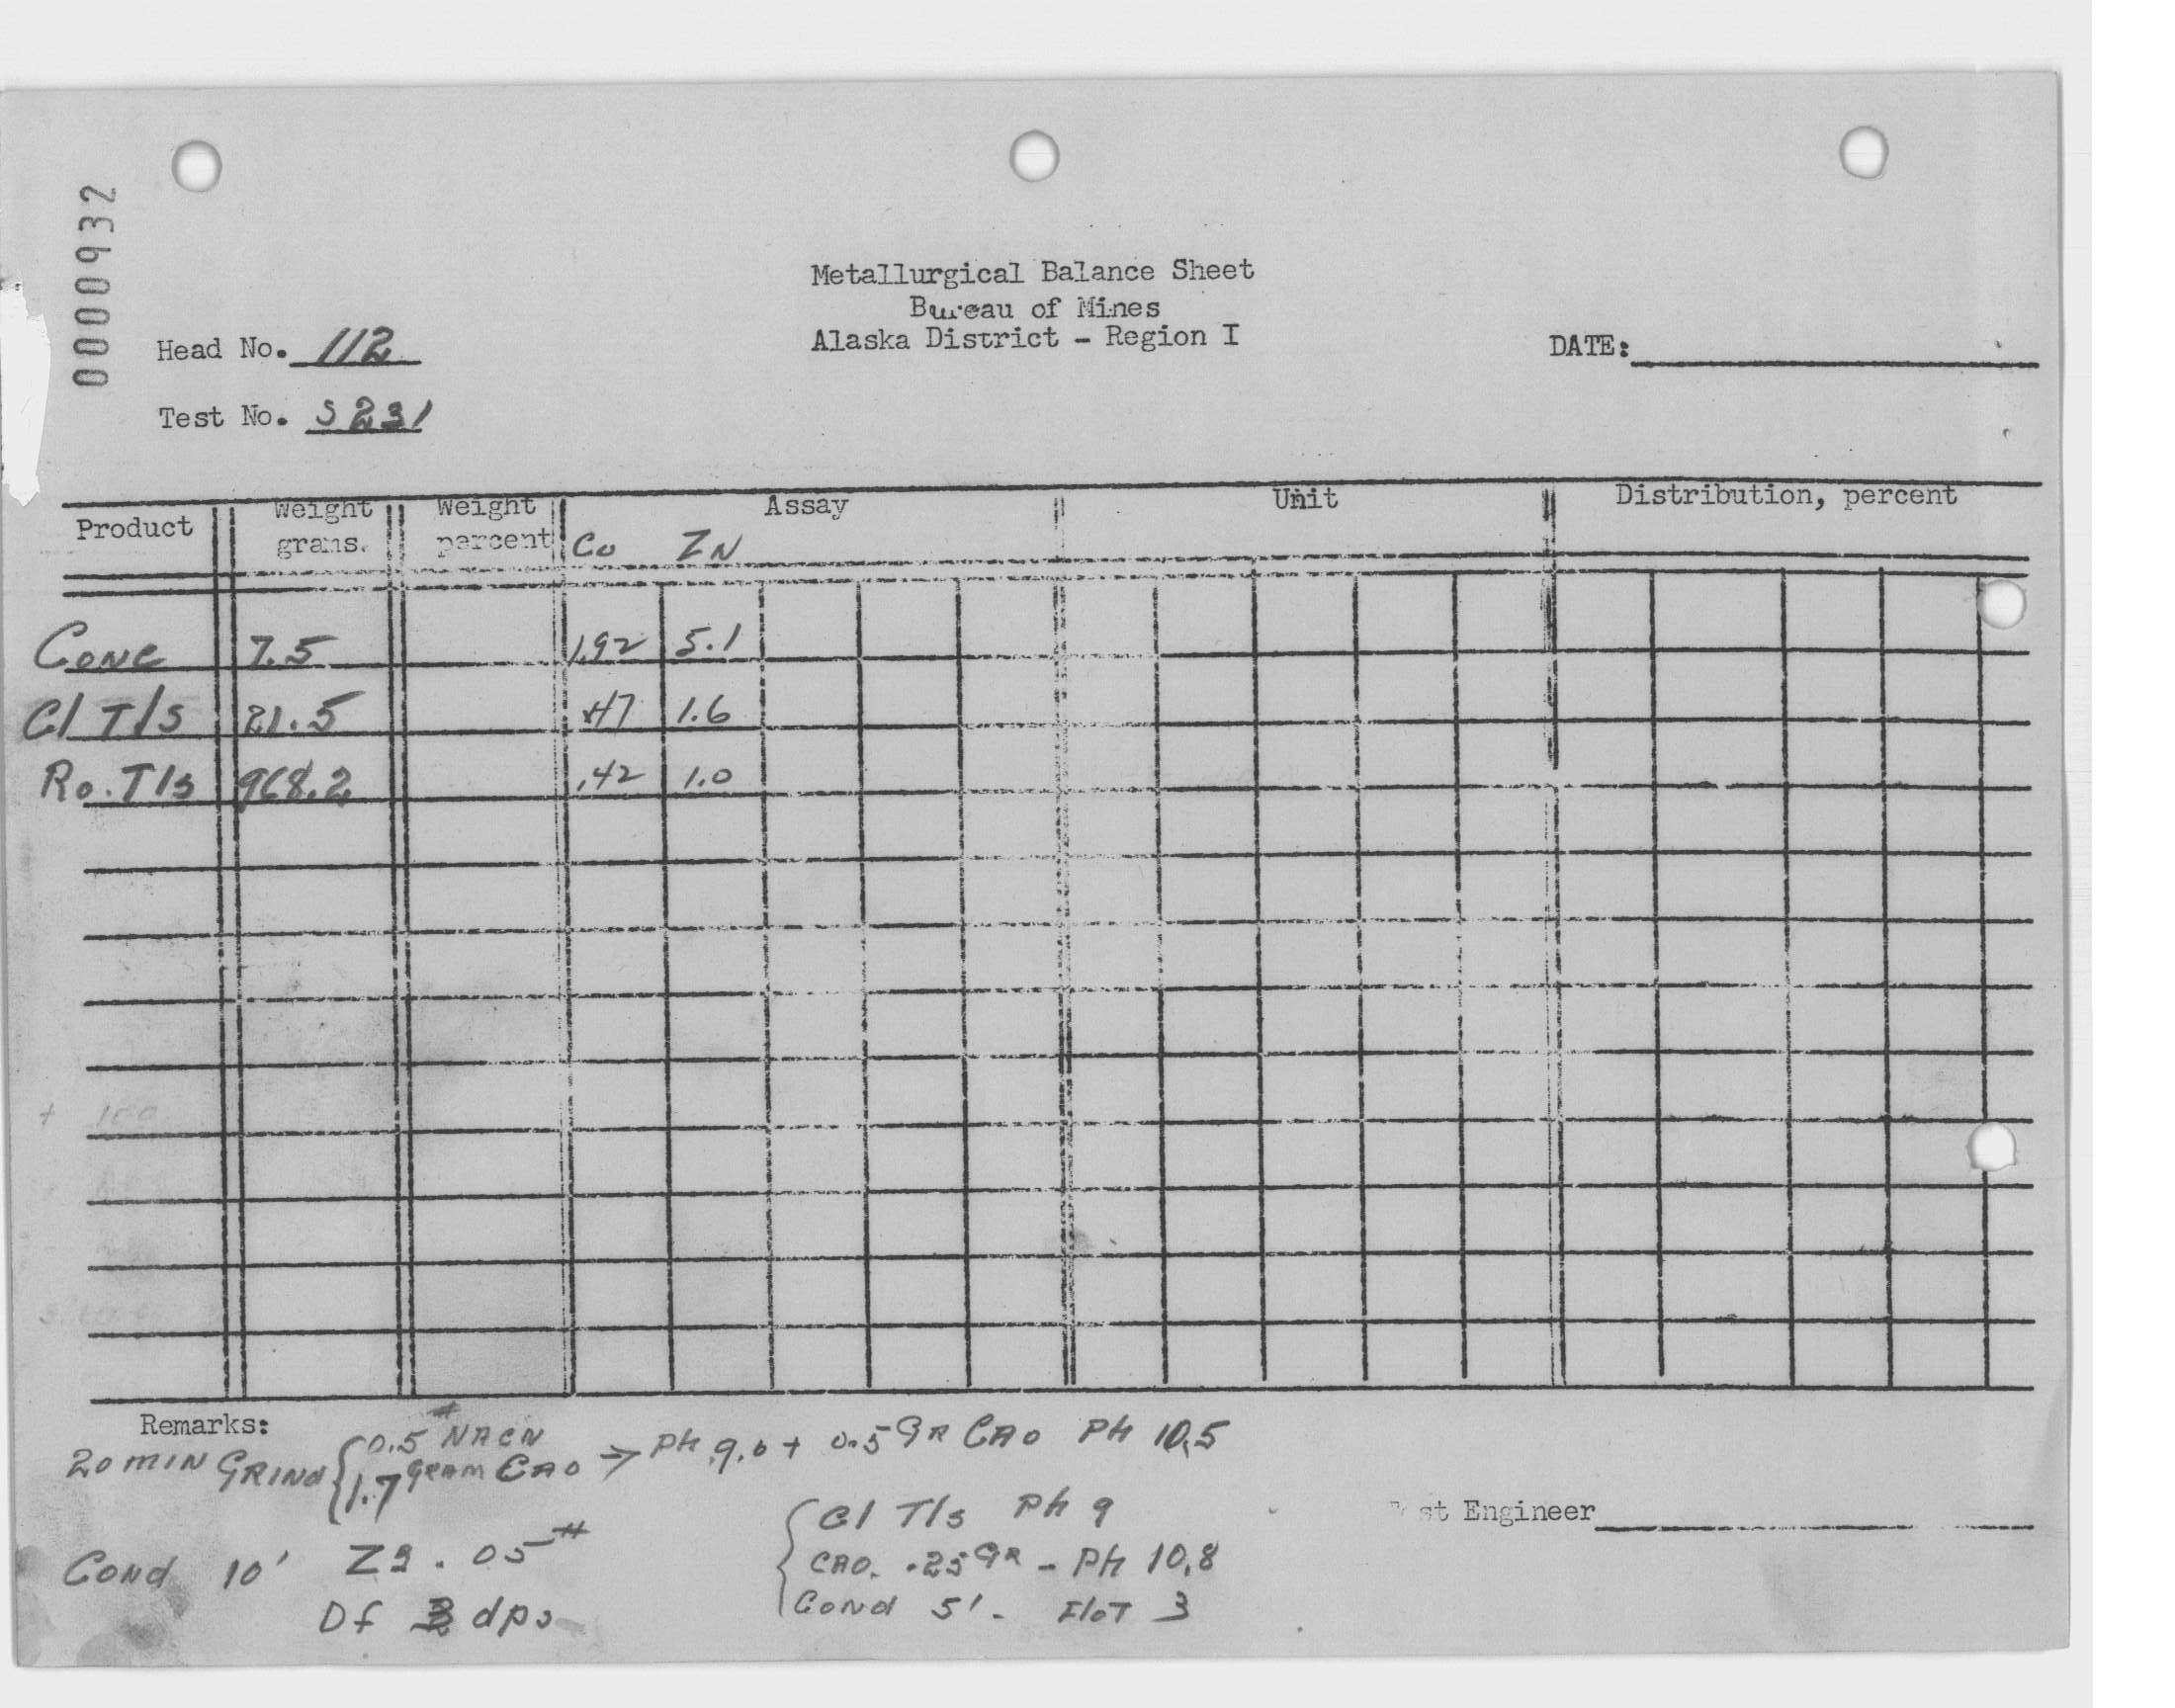 0000932
Metallurgical Balance Sheet
Bureau of Mines
Alaska District - Region I
Head No. 112
DATE:
Test No. S 231
Product Weight grams. Weight percent Assay Unit Distribution, percent
Cu ZN
Conc 7.5 1.92 5.1
Cl Tls 21.5 .47 1.6
Ro. Tls 968.2 .42 1.0
+ 100
Remarks:
20 MIN GRINd { 0.5 # NACN
1.7 GRAM CAO → PH 9.0 + 0.5 GR CAO PH 10.5
Cl Tls PH 9
Test Engineer
COND 10' Z9 . 05 #
CAO. .25 GR - PH 10.8
Df dps
COND 5'. FloT 3